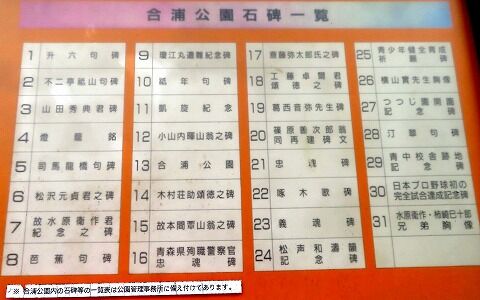 合浦公園石碑一覧
1 升六句碑
2 不二亭祗山句碑
3 山田秀典君碑
4 燈籠銘
5 司馬龍橋句碑
6 松沢元貞君之碑
7 故水原衛作君
紀念之碑
8 芭蕉句碑
9 瓊江丸遭難紀念碑
10 祗年句碑
11 凱旋紀念
12 小山内暉山翁之碑
13 合浦公園
14 木村荘助頌徳之碑
15 故本間覃山翁之碑
16 青森県殉職警察官
忠魂碑
17 斎藤弥太郎氏之碑
18 工藤卓爾君
頌徳之碑
19 葛西音弥先生碑
20 篠原善次郎翁
同再建碑文
21 忠魂碑
22 啄木歌碑
23 義魂碑
24 松声和濤韻
記念碑
25 青少年健全育成
祈願碑
26 横山實先生胸像
27 つつじ園開園
記念碑
28 汀華句碑
29 青中校舎跡地
記念碑
30 日本プロ野球初の
完全試合達成記念碑
31 水原衛作・柿崎巳十郎
兄弟胸像
※ 合浦公園内の石碑等の一覧表は公園管理事務所に備え付けてあります。